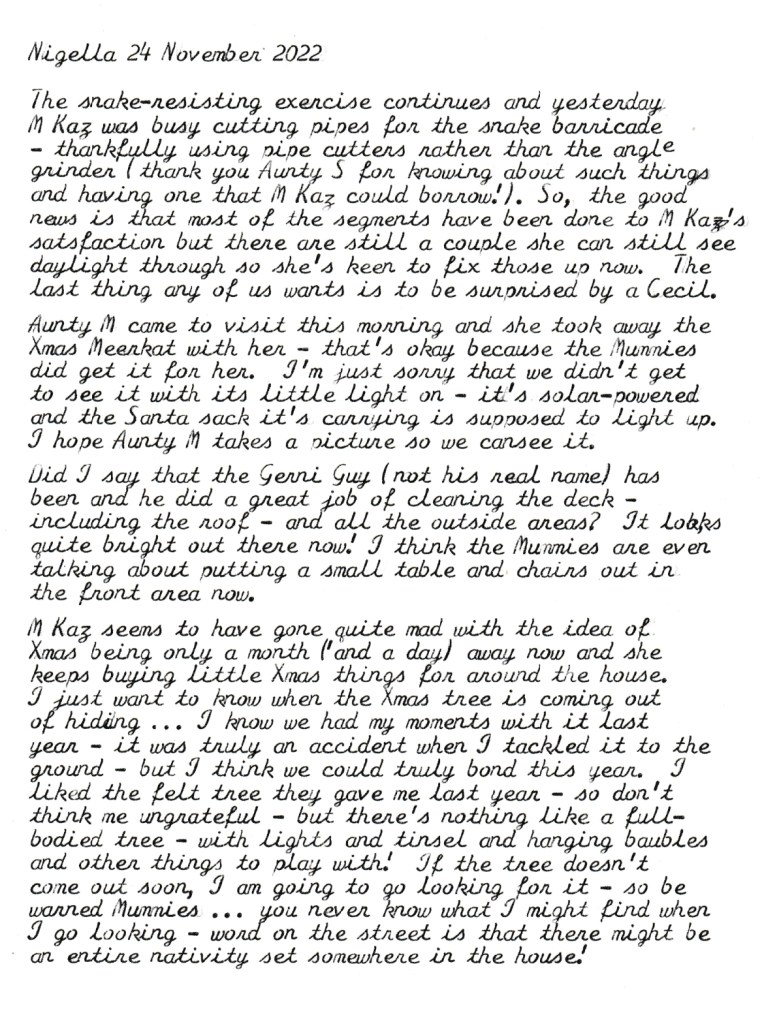 Nigella 24 November 2022
The snake-resisting exercise continues and yesterday
M Kaz was busy cutting pipes for the snake barricade
- thankfully using pipe cutters rather than the angle
grinder (thank you Aunty S for knowing about such things
and having one that M Kaz could borrow!). So, the good
news is that most of the segments have been done to M Kaz's
satisfaction but there are still a couple she can still see
daylight through so she's keen to fix those up now. The
last thing any of us wants is to be surprised by a Cecil.
Aunty M came to visit this morning and she took away the
Xmas Meerkat with her - that's okay because the Mummies
did get it for her. I'm just sorry that we didn't get
to see it with its little light on - it's solar-powered
and the Santa sack it's carrying is supposed to light up.
I hope Aunty M takes a picture so we cansee it.
Did I say that the Gerni Guy (not his real name) has
been and he did a great job of cleaning the deck -
including the roof - and all the outside areas? It looks
quite bright out there now! I think the Mummies are even
talking about putting a small table and chairs out in
the front area now.
M Kaz seems to have gone quite mad with the idea of
Xmas being only a month ('and a day) away now and she
keeps buying little Xmas things for around the house.
I just want to know when the Xmas tree is coming out
of hiding ... I know we had my moments with it last
year - it was truly an accident when I tackled it to the
ground - but I think we could truly bond this year. I
liked the felt tree they gave me last year - so don't
think me ungrateful - but there's nothing like a full-
bodied tree - with lights and tinsel and hanging baubles
and other things to play with! If the tree doesn't
come out soon, I am going to go looking for it - so be
warned Mummies ... you never know what I might find when
I go looking - word on the street is that there might be
an entire nativity set somewhere in the house!